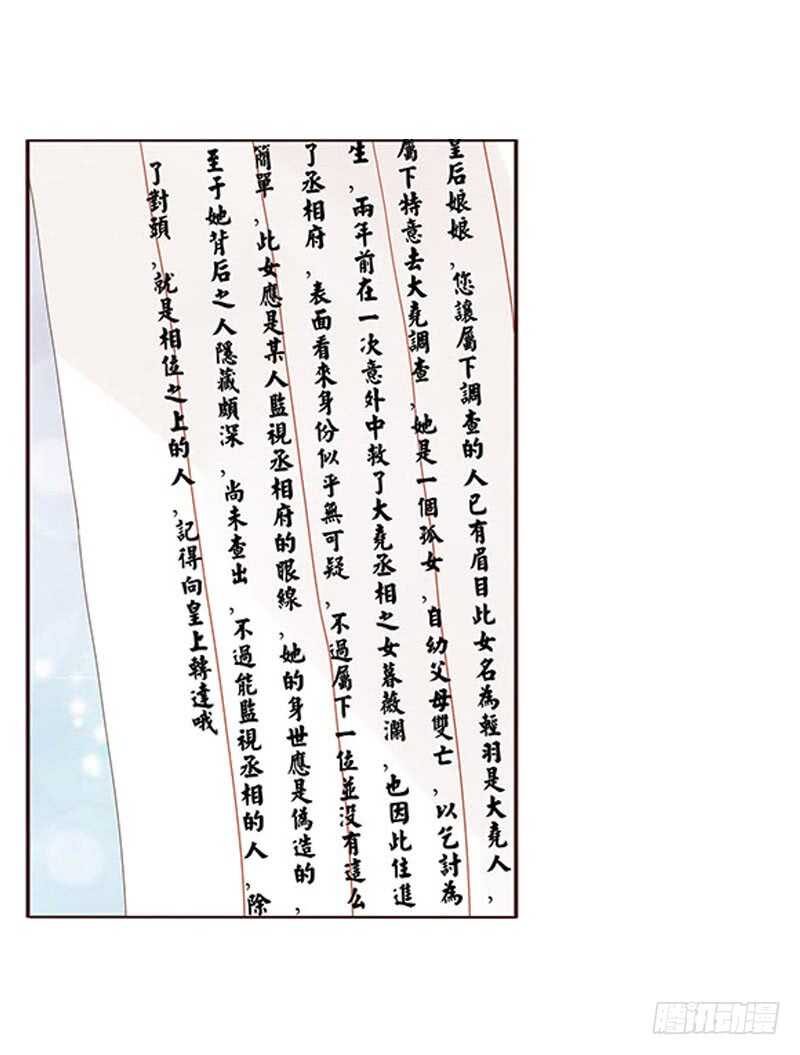 皇后娘娘,您讓屬下調查的人已有眉目此女名為輕羽是大堯人,
屬下特意去大堯調查,她是一個孤女,自幼父母雙亡,以乞討為
生,兩年前在一次意外中救了大堯丞相之女暮薇瀾,也因此住進
了丞相府,表面看來身份似乎無可疑,不過屬下一位並沒有這么
簡單,此女應是某人監視丞相府的眼線,她的身世應是偽造的,
至于她背后之人隱藏頗深,尚未查出,不過能監視丞相的人,除
了對頭,就是相位之上的人,記得向皇上轉達哦
腾讯动漫